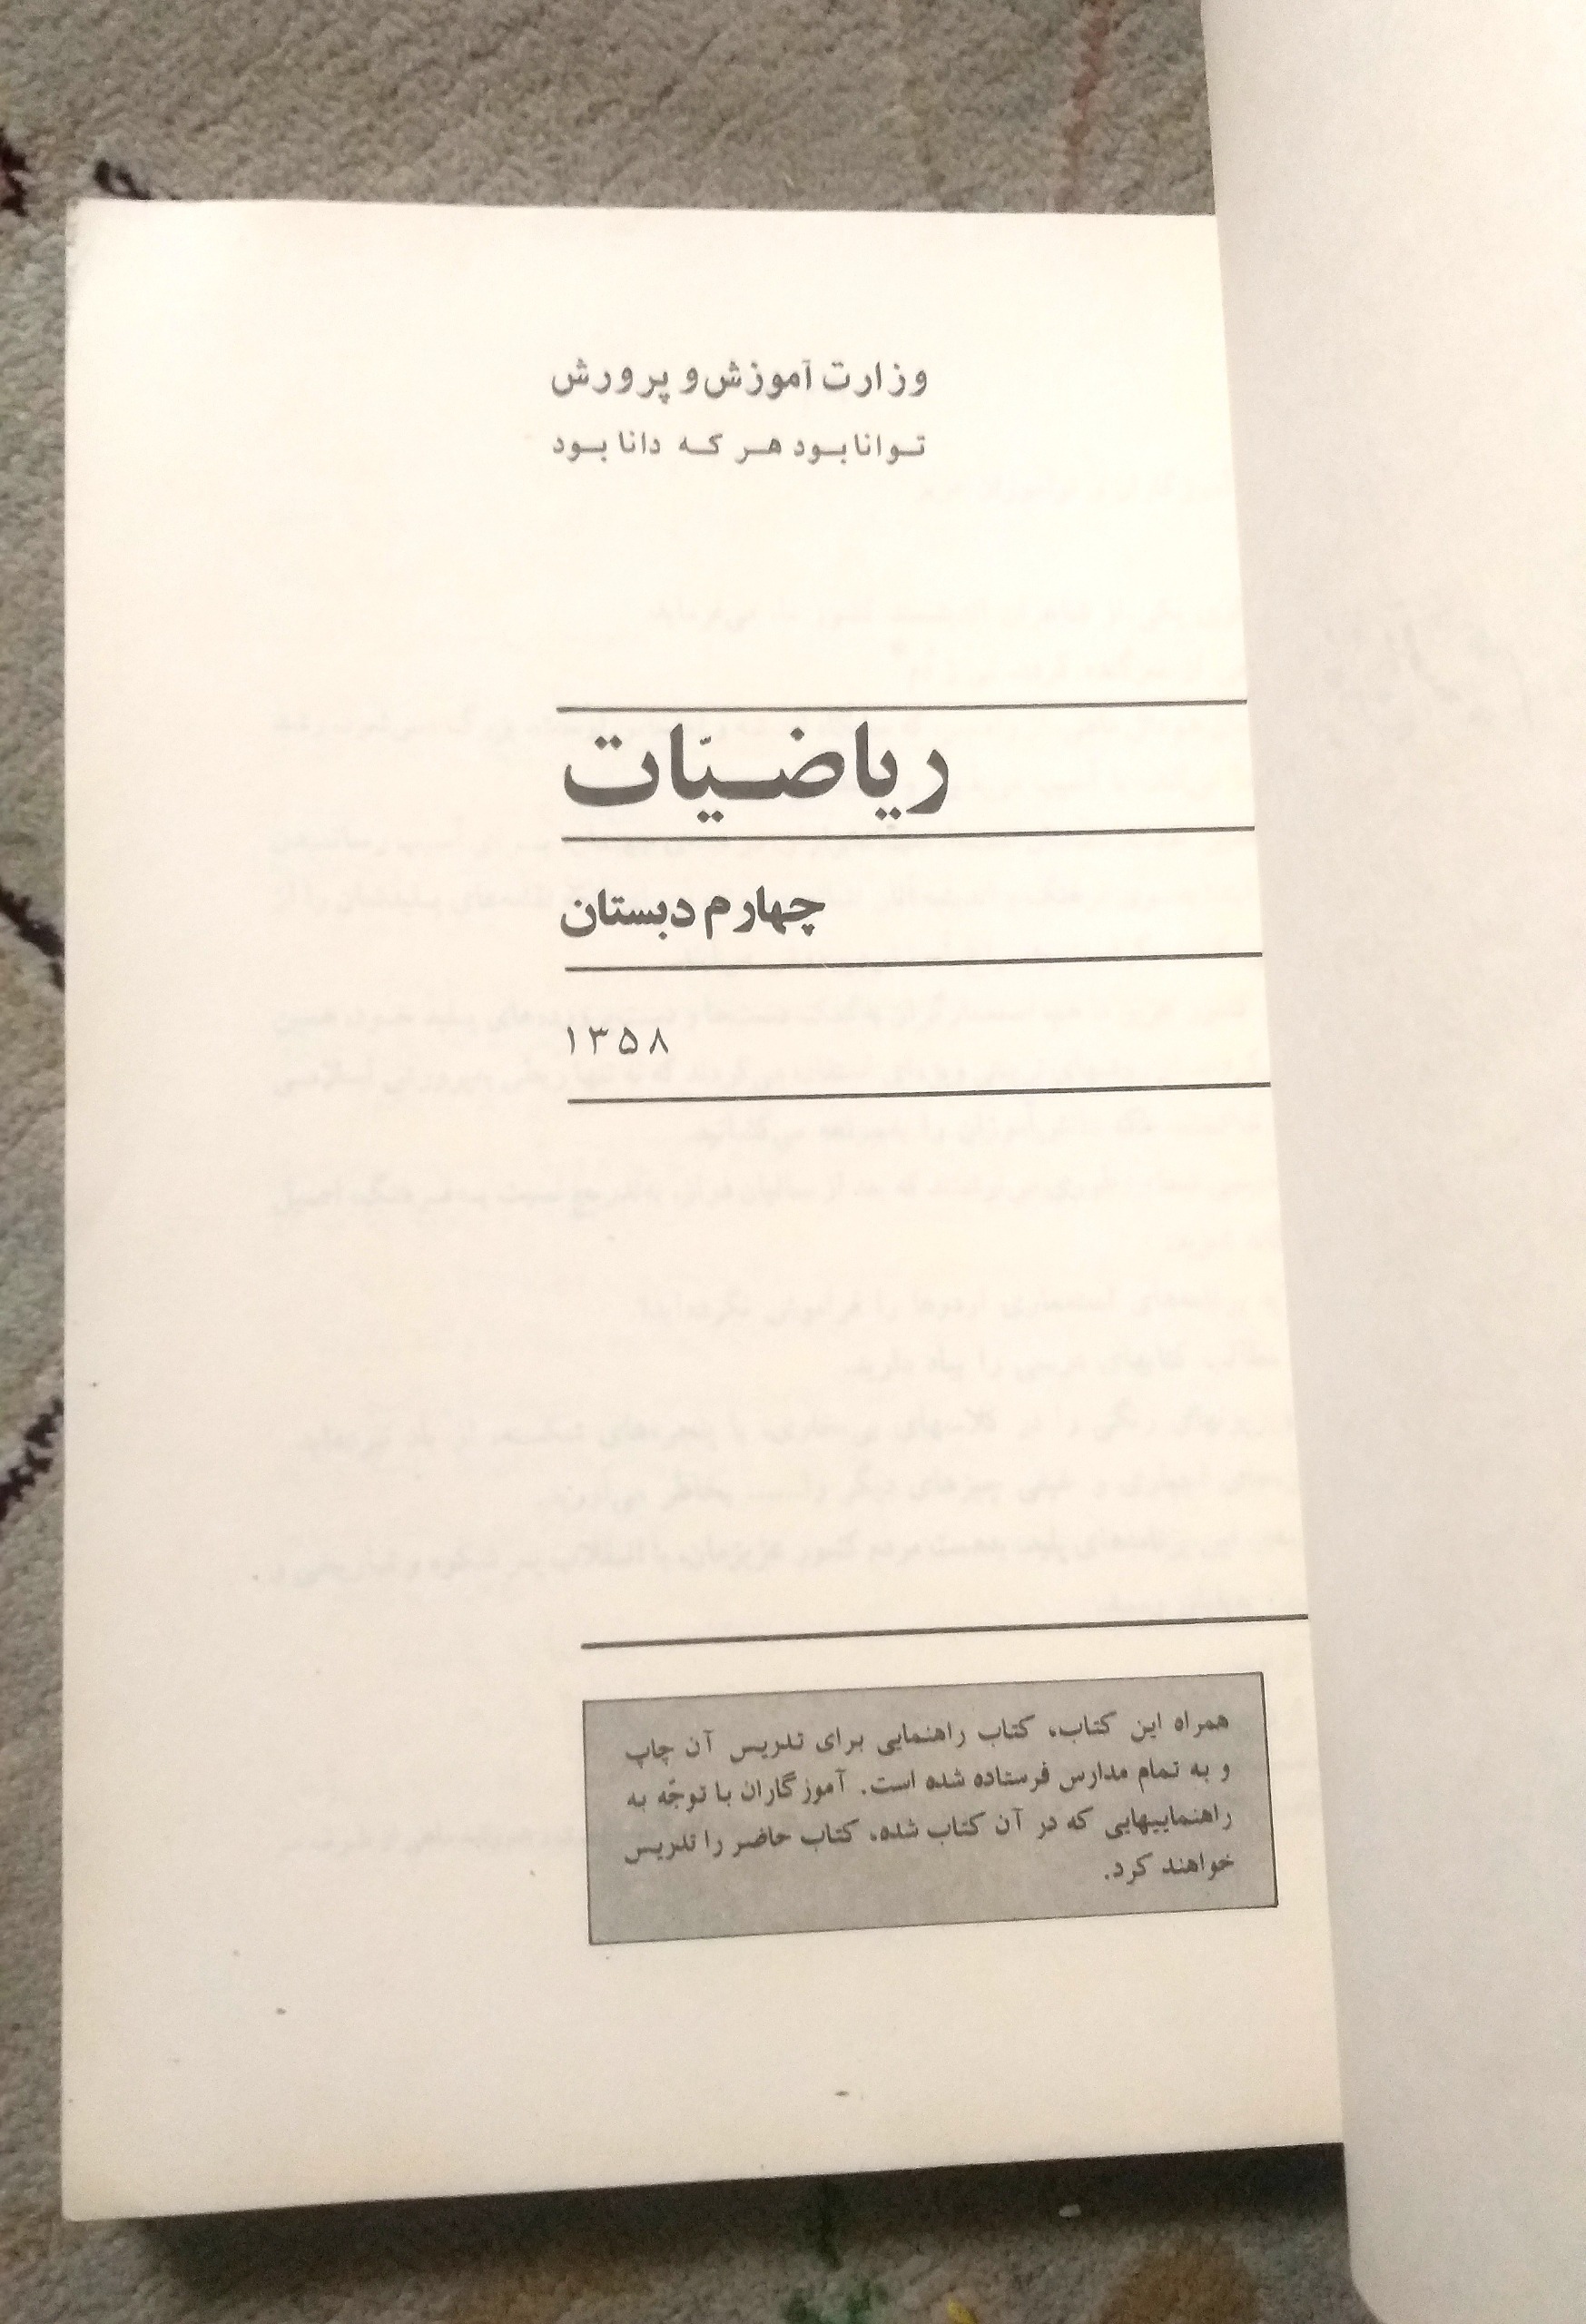 وزارت آموزش و پرورش
توانا بود هر که دانا بود
ریاضیّات
چهارم دبستان
۱۳۵۸
همراه این کتاب، کتاب راهنمایی برای تدریس آن چاپ
و به تمام مدارس فرستاده شده است. آموزگاران با توجّه به
راهنماییهایی که در آن کتاب شده، کتاب حاضر را تدریس
خواهند کرد.